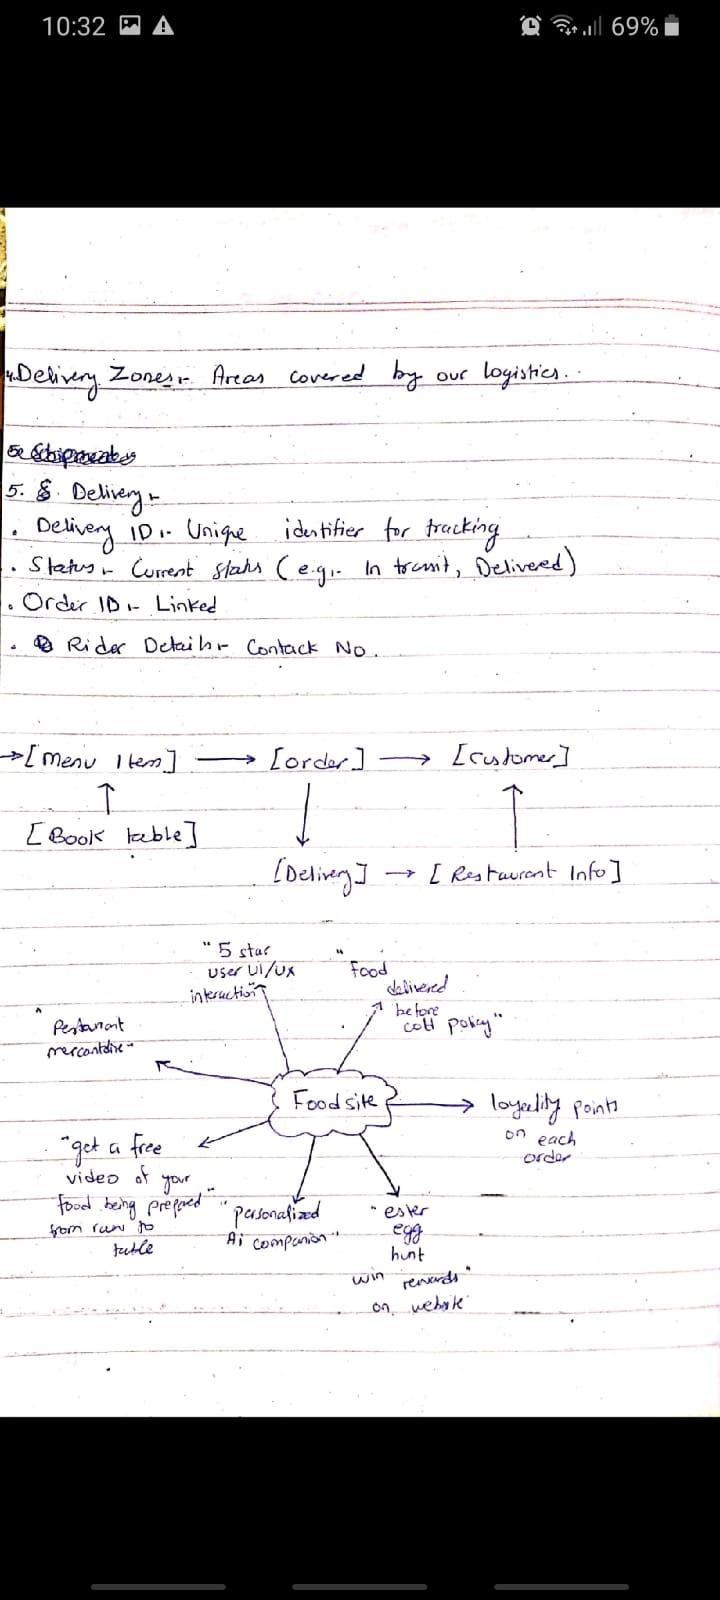 10:32
69%
4. Delivery Zones:- Areas covered by our logistics.
5. Delivery:-
• Delivery ID:- Unique identifier for tracking
• Status:- Current status (e.g:- In transit, Delivered)
• Order ID:- Linked
• Rider Details:- Contack No.
→ [Menu Item] → [order] → [Customer]
[Book table]
[Delivery] → [Restaurant Info]
"5 star
user UI/UX
interaction"
"Food
delivered
before
cold policy"
"Restaurant
mercantdise"
Foodsite
loyality points
on each
order
"get a free
video of your
food being prepared"
from raw to
table
"personalized
Ai companion"
"ester
egg
hunt
win rewards"
on website